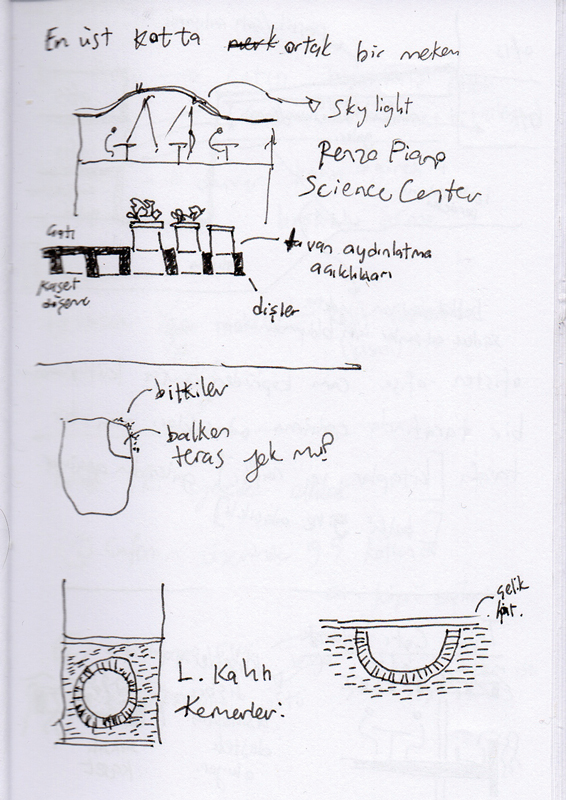 En üst kotta merk ortak bir mekan
Skylight
Renzo Piano
Science Center
Çatı
tavan aydınlatma
açıklıkları
kaset
döşeme
dişler
bitkiler
balkon
teras yok mu?
çelik
L. Kahn
kemerler: